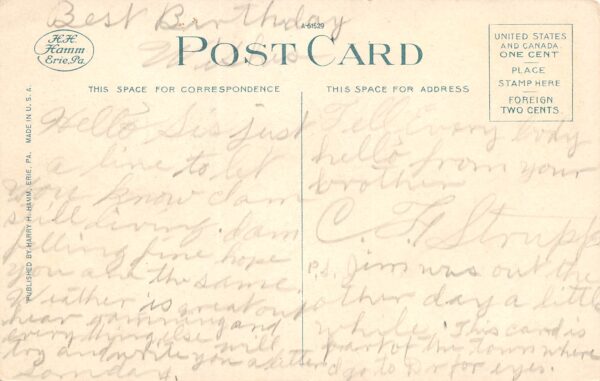 Best Birthday
Wishes
A-61529
H.H.
Hamm
Erie, Pa.
POST CARD
UNITED STATES
AND CANADA
ONE CENT
PLACE
STAMP HERE
FOREIGN
TWO CENTS
THIS SPACE FOR CORRESPONDENCE
THIS SPACE FOR ADDRESS
PUBLISHED BY HARRY H. HAMM, ERIE, PA. MADE IN U.S.A.
Hello Sis just
a line to let
you know I am
still living. I am
filling fine hope
you are the same.
Weather is great out
hear and
everything else
dry and write you a letter
Someday.
Tell Every body
hello from your
brother
C. F. Strupp
P.S. Jim was out the
other day a little
while. This card is
part of the town where
I go to Dr for eyes.